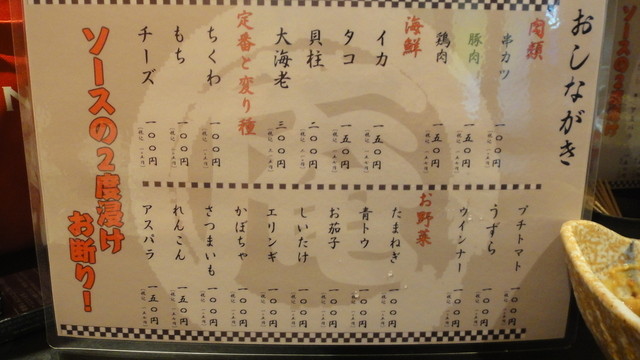 おしながき
肉類
串カツ 一〇〇円
豚肉 一五〇円
鶏肉 一五〇円
海鮮
イカ 一五〇円
タコ 一五〇円
貝柱 二〇〇円
大海老 三〇〇円
定番と変り種
ちくわ 一〇〇円
もち 一〇〇円
チーズ 一〇〇円
プチトマト 一〇〇円
うずら 一〇〇円
ウインナー 一〇〇円
お野菜
たまねぎ 一〇〇円
青トウ 一〇〇円
お茄子 一〇〇円
しいたけ 一〇〇円
エリンギ 一〇〇円
かぼちゃ 一〇〇円
さつまいも 一〇〇円
れんこん 一五〇円
アスパラ 一五〇円
ソースの2度浸け
お断り!